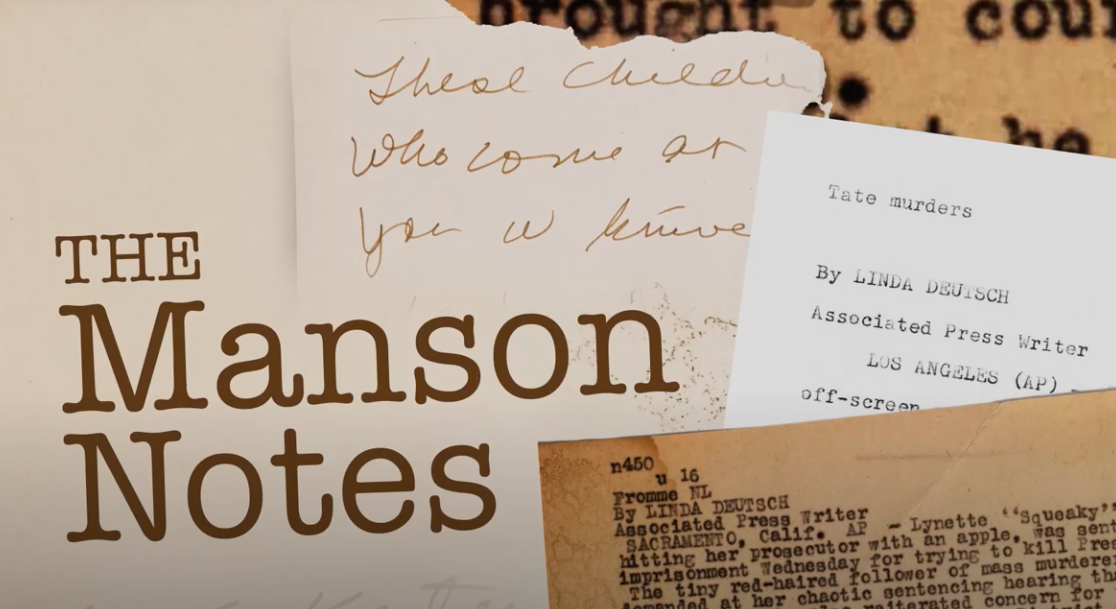 brought to cour
he
These Childre
Who come at
you w knive
THE
Manson
Notes
Tate murders
By LINDA DEUTSCH
Associated Press Writer
LOS ANGELES (AP) –
off-screen
n450
u 16
Fromme NL
By LINDA DEUTSCH
Associated Press Writer
SACRAMENTO, Calif. AP – Lynette ‘‘Squeaky’’
hitting her prosecutor with an apple, was sent
imprisonment Wednesday for trying to kill Pres
The tiny red-haired follower of mass murdere
demanded at her chaotic sentencing hearing tha
reiterated concern for